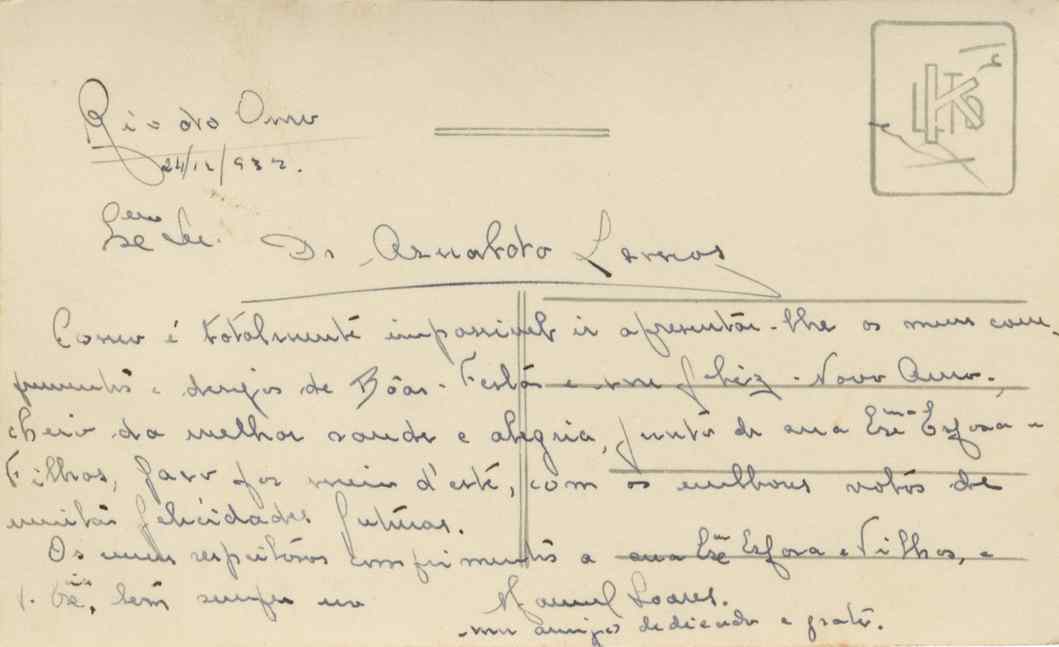 Rio do Ouro
24/12/932.
Exmo Snr. Dr Arnaldo Lemos
Como é totalmente impossivel ir apresentár-lhe os meus com-
primentos e desejos de Bôas-Festas e um feliz-Novo Anno,
cheio da melhor saude e alegria, junto de sua Exma Esposa e
Filhos, faço por meio d'este, com os milhores votos de
muitas felicidades futuras.
Os meus respeitosos comprimentos a sua Exma Esposa e Filhos, e
V. Excia, tem sempre no Manuel Soares.
um amigo dedicado e grato.